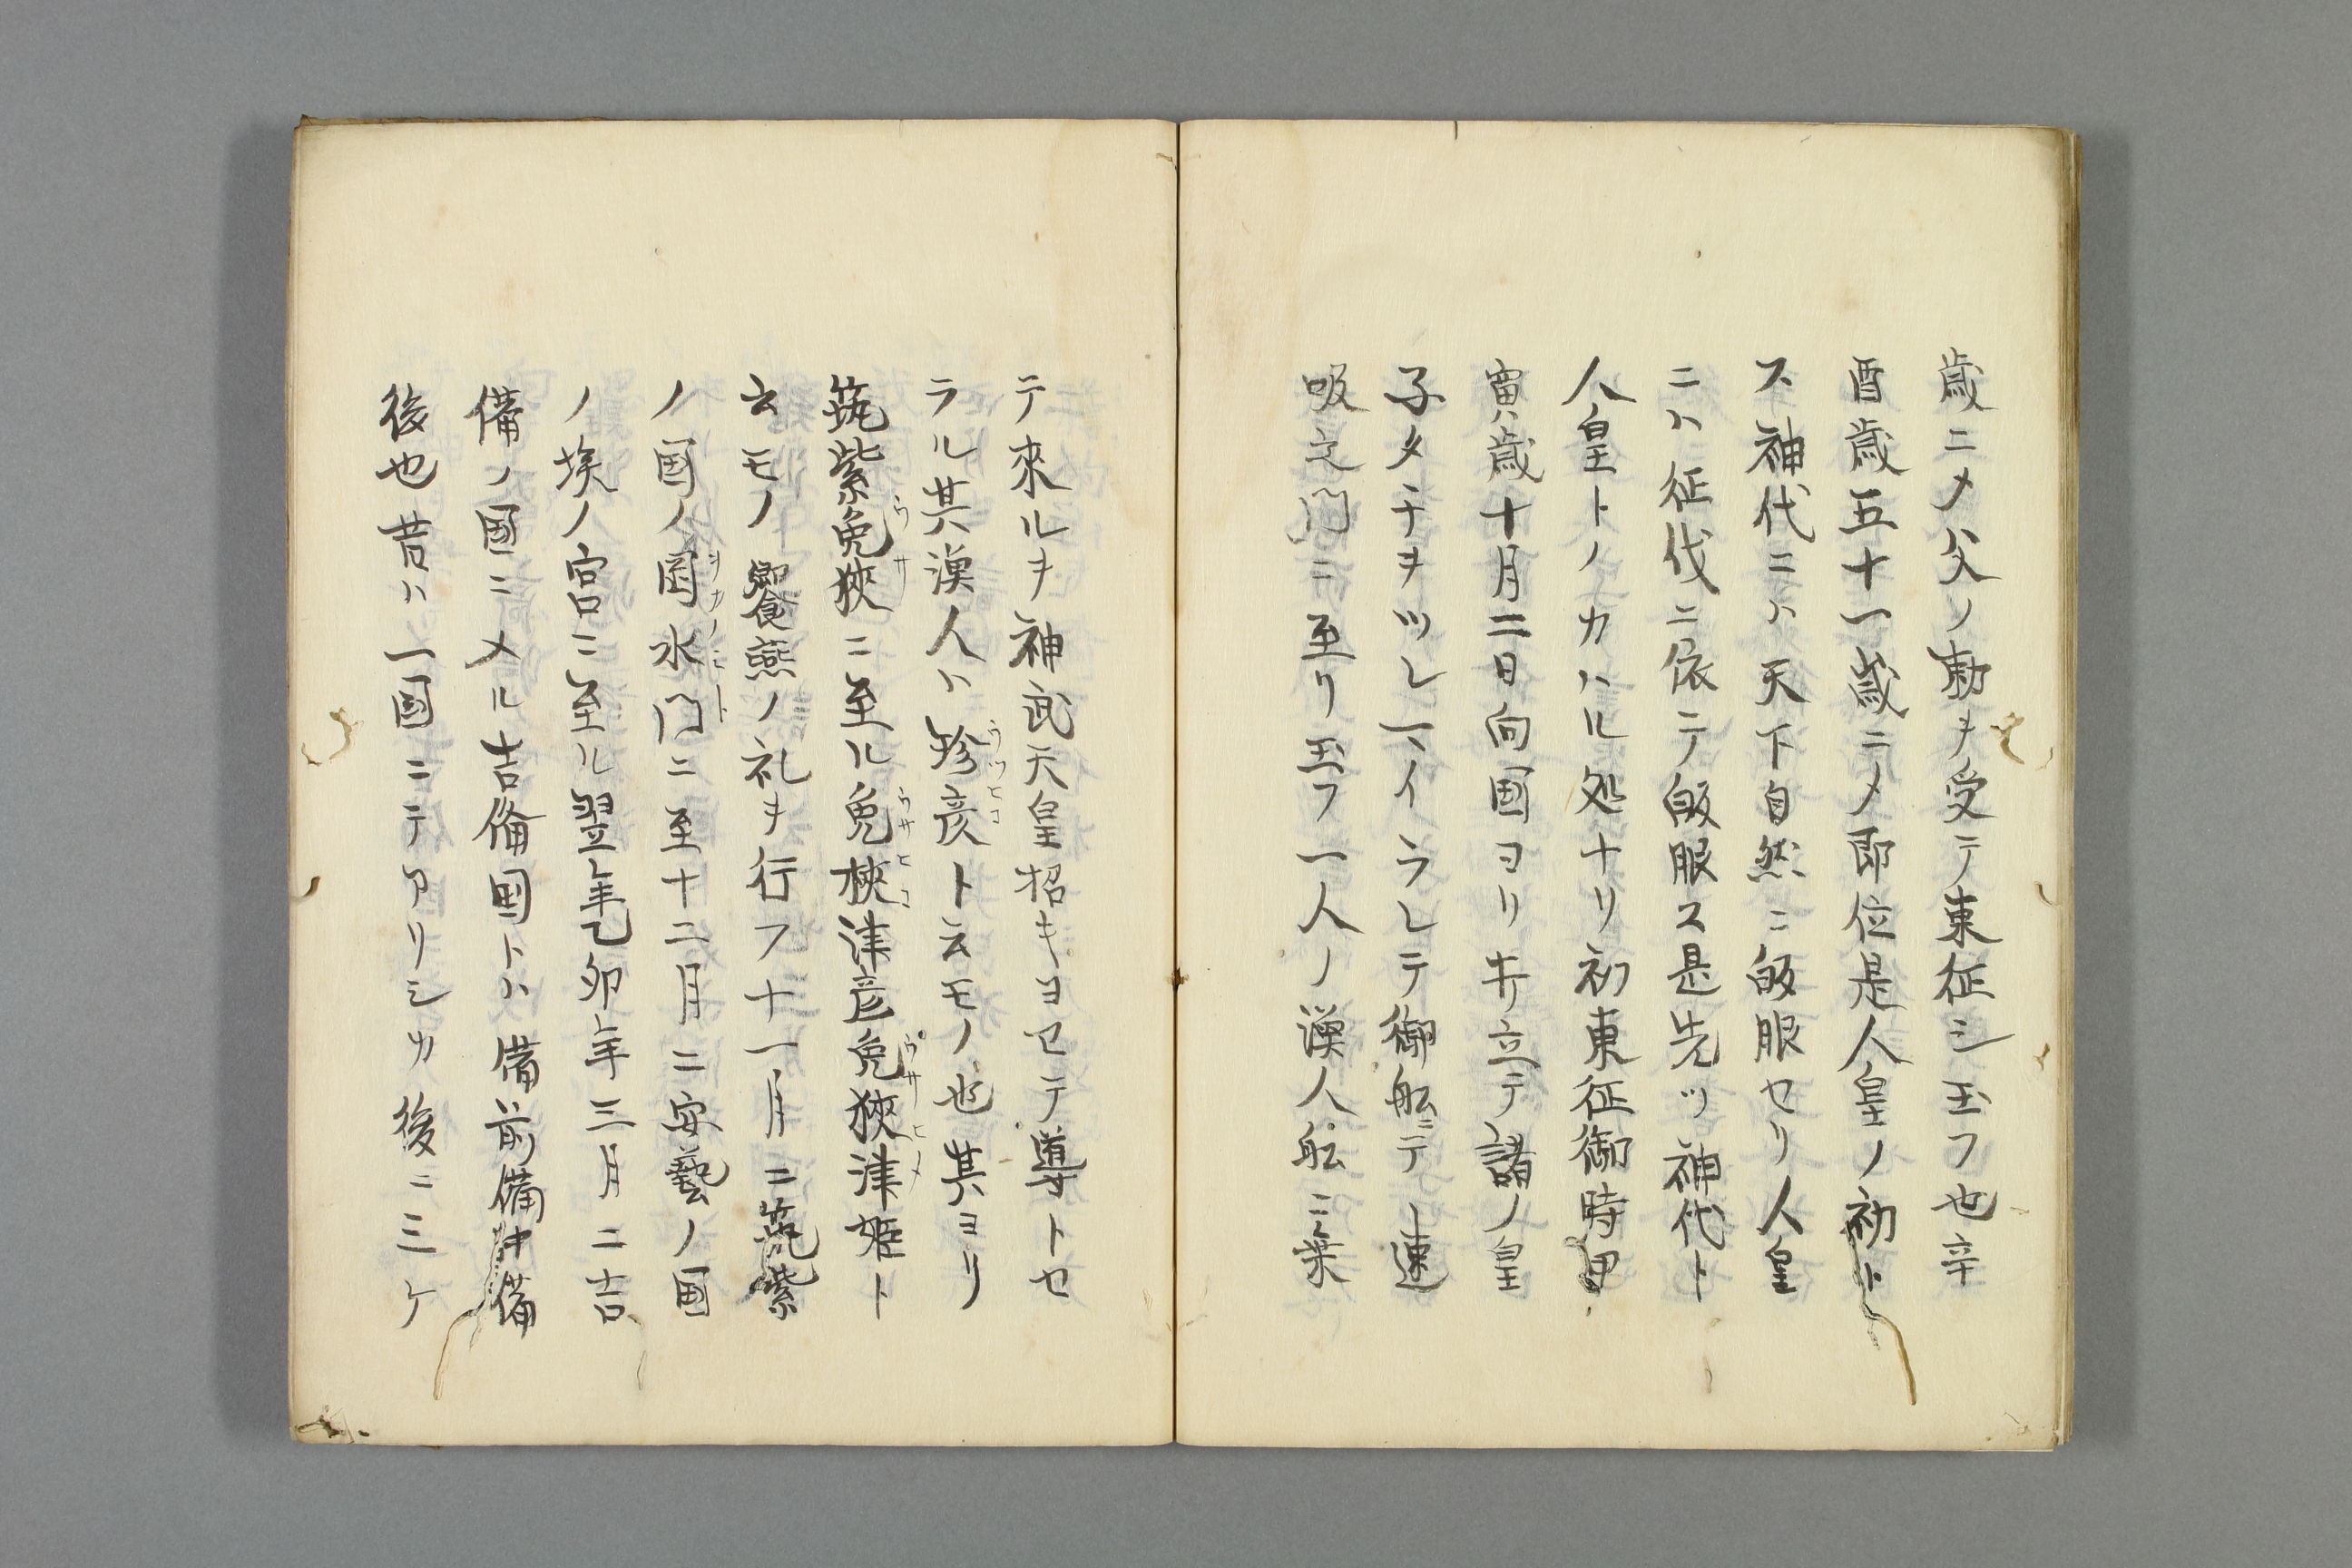 歳ニメ父ノ勅ヲ受テ東征シ玉フ也辛
酉歳五十一歳ニメ即位是人皇ノ初ト
ス神代ニハ天下自然ニ皈服セリ人皇
ニハ征伐ニ依テ皈服ス是先ツ神代ト
人皇トノカハル処ナリ初東征御時甲
寅歳十月二日向國ヨリ立テ諸ノ皇
子タチヲツレイラレテ御舩ニテ速
吸之門ニ至リ玉フ一人ノ漁人舩ニ乗
テ來ルヲ神武天皇招キヨセテ導トセ
ラル其漁人ハ珍彦ト云モノ也其ヨリ
筑紫兔狹ニ至ル兔狹津彦兔狹津姫ト
云モノ饗燕ノ礼ヲ行フ十一月ニ筑紫
ノ國ノ岡水門ニ至十二月ニ安藝ノ國
ノ埃ノ宮ニ至ル翌年乙卯年三月ニ吉
備ノ國ニメル吉備國トハ備前備中備
後也昔ハ一國ニテアリシカ後ニ三ケ